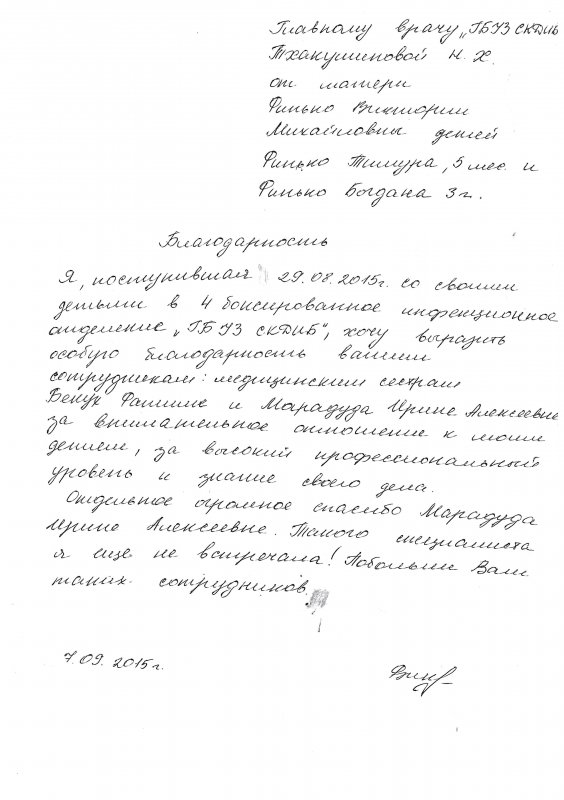 Главному врачу „ГБУЗ СКДИБ
Тхакушиновой Н. Х.
от матери
Финько Виктории
Михайловны детей
Финько Тимура, 5 мес. и
Финько Богдана 3 г.
Благодарность
Я, поступившая 29.08.2015г. со своими
детьми в 4 боксированное инфекционное
отделение „ГБУЗ СКДИБ", хочу выразить
особую благодарность вашим
сотрудникам: медицинским сестрам
Бекух Фатиме и Марадуда Ирине Алексеевне
за внимательное отношение к моим
детям, за высокий профессиональный
уровень и знание своего дела.
Отдельное огромное спасибо Марадуда
Ирине Алексеевне. Такого специалиста
я еще не встречала! Побольше Вам
таких сотрудников.
7.09.2015г.